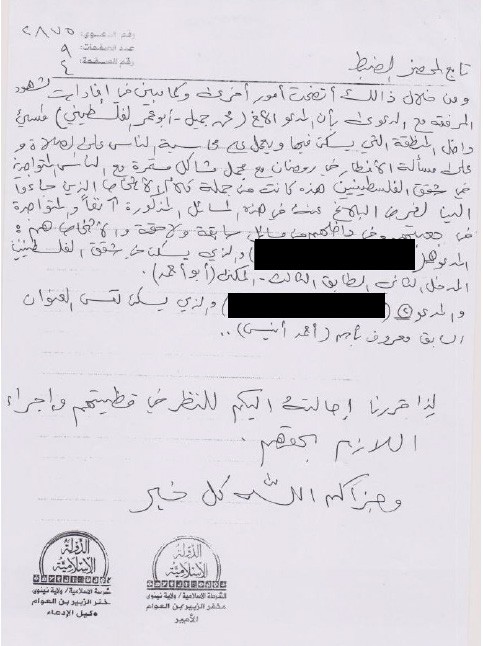 رقم الدعوى: ٢٨٧٥
عدد الصفحات: ٩
رقم الصفحة: ٤
تابع لمحضر الضبط
ومن خلال ذالك أتضحت أمور أخرى وكما مبين في إفادات الشهود
المرفقة مع الدعوى بأن المدعو الأخ (محمد جميل - أبو عمر الفلسطيني)
داخل المنطقة التي يسكن فيها ويعمل على محاسبة الناس على الصلاة و
على مسألة الأفطار في رمضان مع عمل مشاكل مستمرة مع الناس المتواجدة
في شقق الفلسطينيين هذه كانت من جملة الأشخاص الذي جاءوا
الينا لغرض البلاغ عنه في هذه المسائل المذكورة آنفاً والمتواجدة
في مسائل سابقة ولاحقة والأشخاص هم:
المدعو ( ) والذي يسكن في شقق الفلسطينيين
المدخل الثاني الطابق الثالث - المكنى (أبو أحمد).
و المدعو (٢) ( ) والذي يسكن نفس العنوان
السابق معروف بأسم (أحمد أنيس)..
لذا قررنا إحالته اليكم للنظر في قضيتهم وإجراء
اللازم بحقهم.
وجزاكم الله كل خير
الدولة الإسلامية
الشرطة الاسلامية / ولاية نينوى
مخفر الزبير بن العوام
الأمير
الدولة الإسلامية
شرطة الاسلامية / ولاية نينوى
مخفر الزبير بن العوام
وكيل الإدعاء